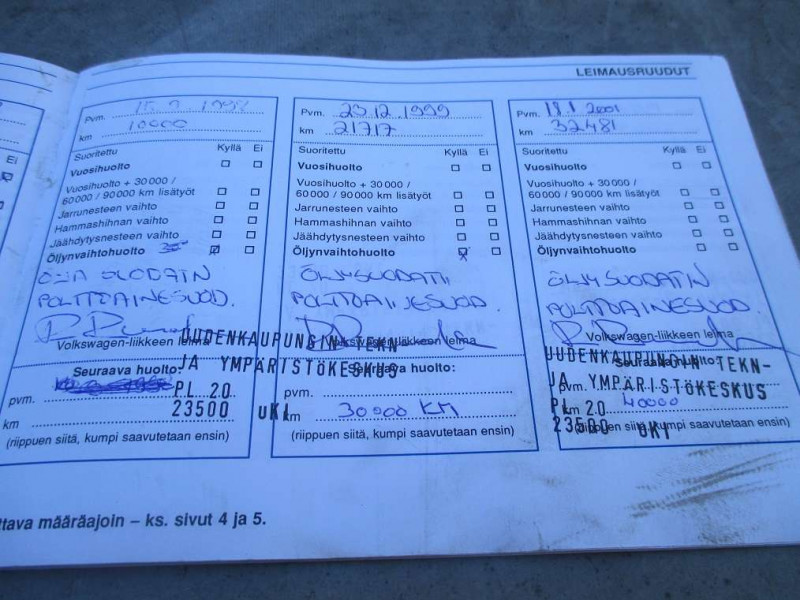 LEIMAUSRUUDUT
Ei
Pvm. 1998
km 10000
Suoritettu Kyllä Ei
Vuosihuolto
Vuosihuolto + 30 000 /
60 000 / 90 000 km lisätyöt
Jarrunesteen vaihto
Hammashihnan vaihto
Jäähdytysnesteen vaihto
Öljynvaihtohuolto
POLTTOAINESUOD.
Volkswagen-liikkeen leima
UUDENKAUPUNGIN TEKN
JA YMPÄRISTÖKESKUS
PL 20
23500 UKI
Seuraava huolto:
pvm.
km
(riippuen siitä, kumpi saavutetaan ensin)
Pvm. 29.12.1999
km 21717
Suoritettu Kyllä Ei
Vuosihuolto
Vuosihuolto + 30 000 /
60 000 / 90 000 km lisätyöt
Jarrunesteen vaihto
Hammashihnan vaihto
Jäähdytysnesteen vaihto
Öljynvaihtohuolto
Volkswagen-liikkeen leima
Seuraava huolto:
pvm.
km 30000 KM
(riippuen siitä, kumpi saavutetaan ensin)
Pvm. 18.1 2001
km 32481
Suoritettu Kyllä Ei
Vuosihuolto
Vuosihuolto + 30 000 /
60 000 / 90 000 km lisätyöt
Jarrunesteen vaihto
Hammashihnan vaihto
Jäähdytysnesteen vaihto
Öljynvaihtohuolto
ÖLJYSUODATIN
POLTTOAINESUOD
Volkswagen-liikkeen leima
UUDENKAUPUNGIN TEKN-
JA YMPÄRISTÖKESKUS
PL 20
23500 UKI
Seuraava huolto:
pvm.
km 40000
(riippuen siitä, kumpi saavutetaan ensin)
ttava määräajoin – ks. sivut 4 ja 5.